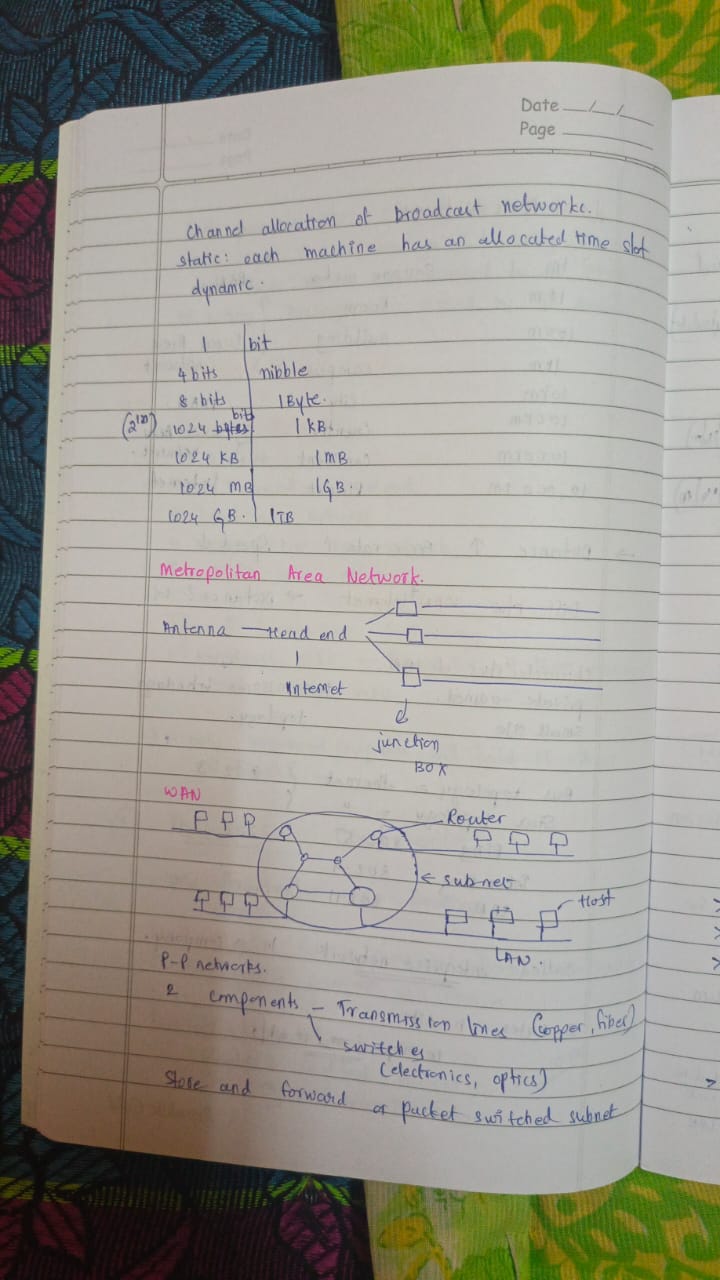 Date __/__/__
Page
Channel allocation of broadcast networks.
static: each machine has an allocated time slot
dynamic.
1 bit
4 bits nibble
8 bits 1 Byte.
bit
(2^10) 1024 bytes 1 KB
1024 KB 1 MB
1024 MB 1 GB.
1024 GB. 1 TB
Metropolitan Area Network.
Antenna — Head end
Internet
junction
BOX
WAN
Router
subnet
Host
LAN.
P-P networks.
2 components - Transmission lines (copper, fiber)
switches
(electronics, optics)
Store and forward or packet switched subnet